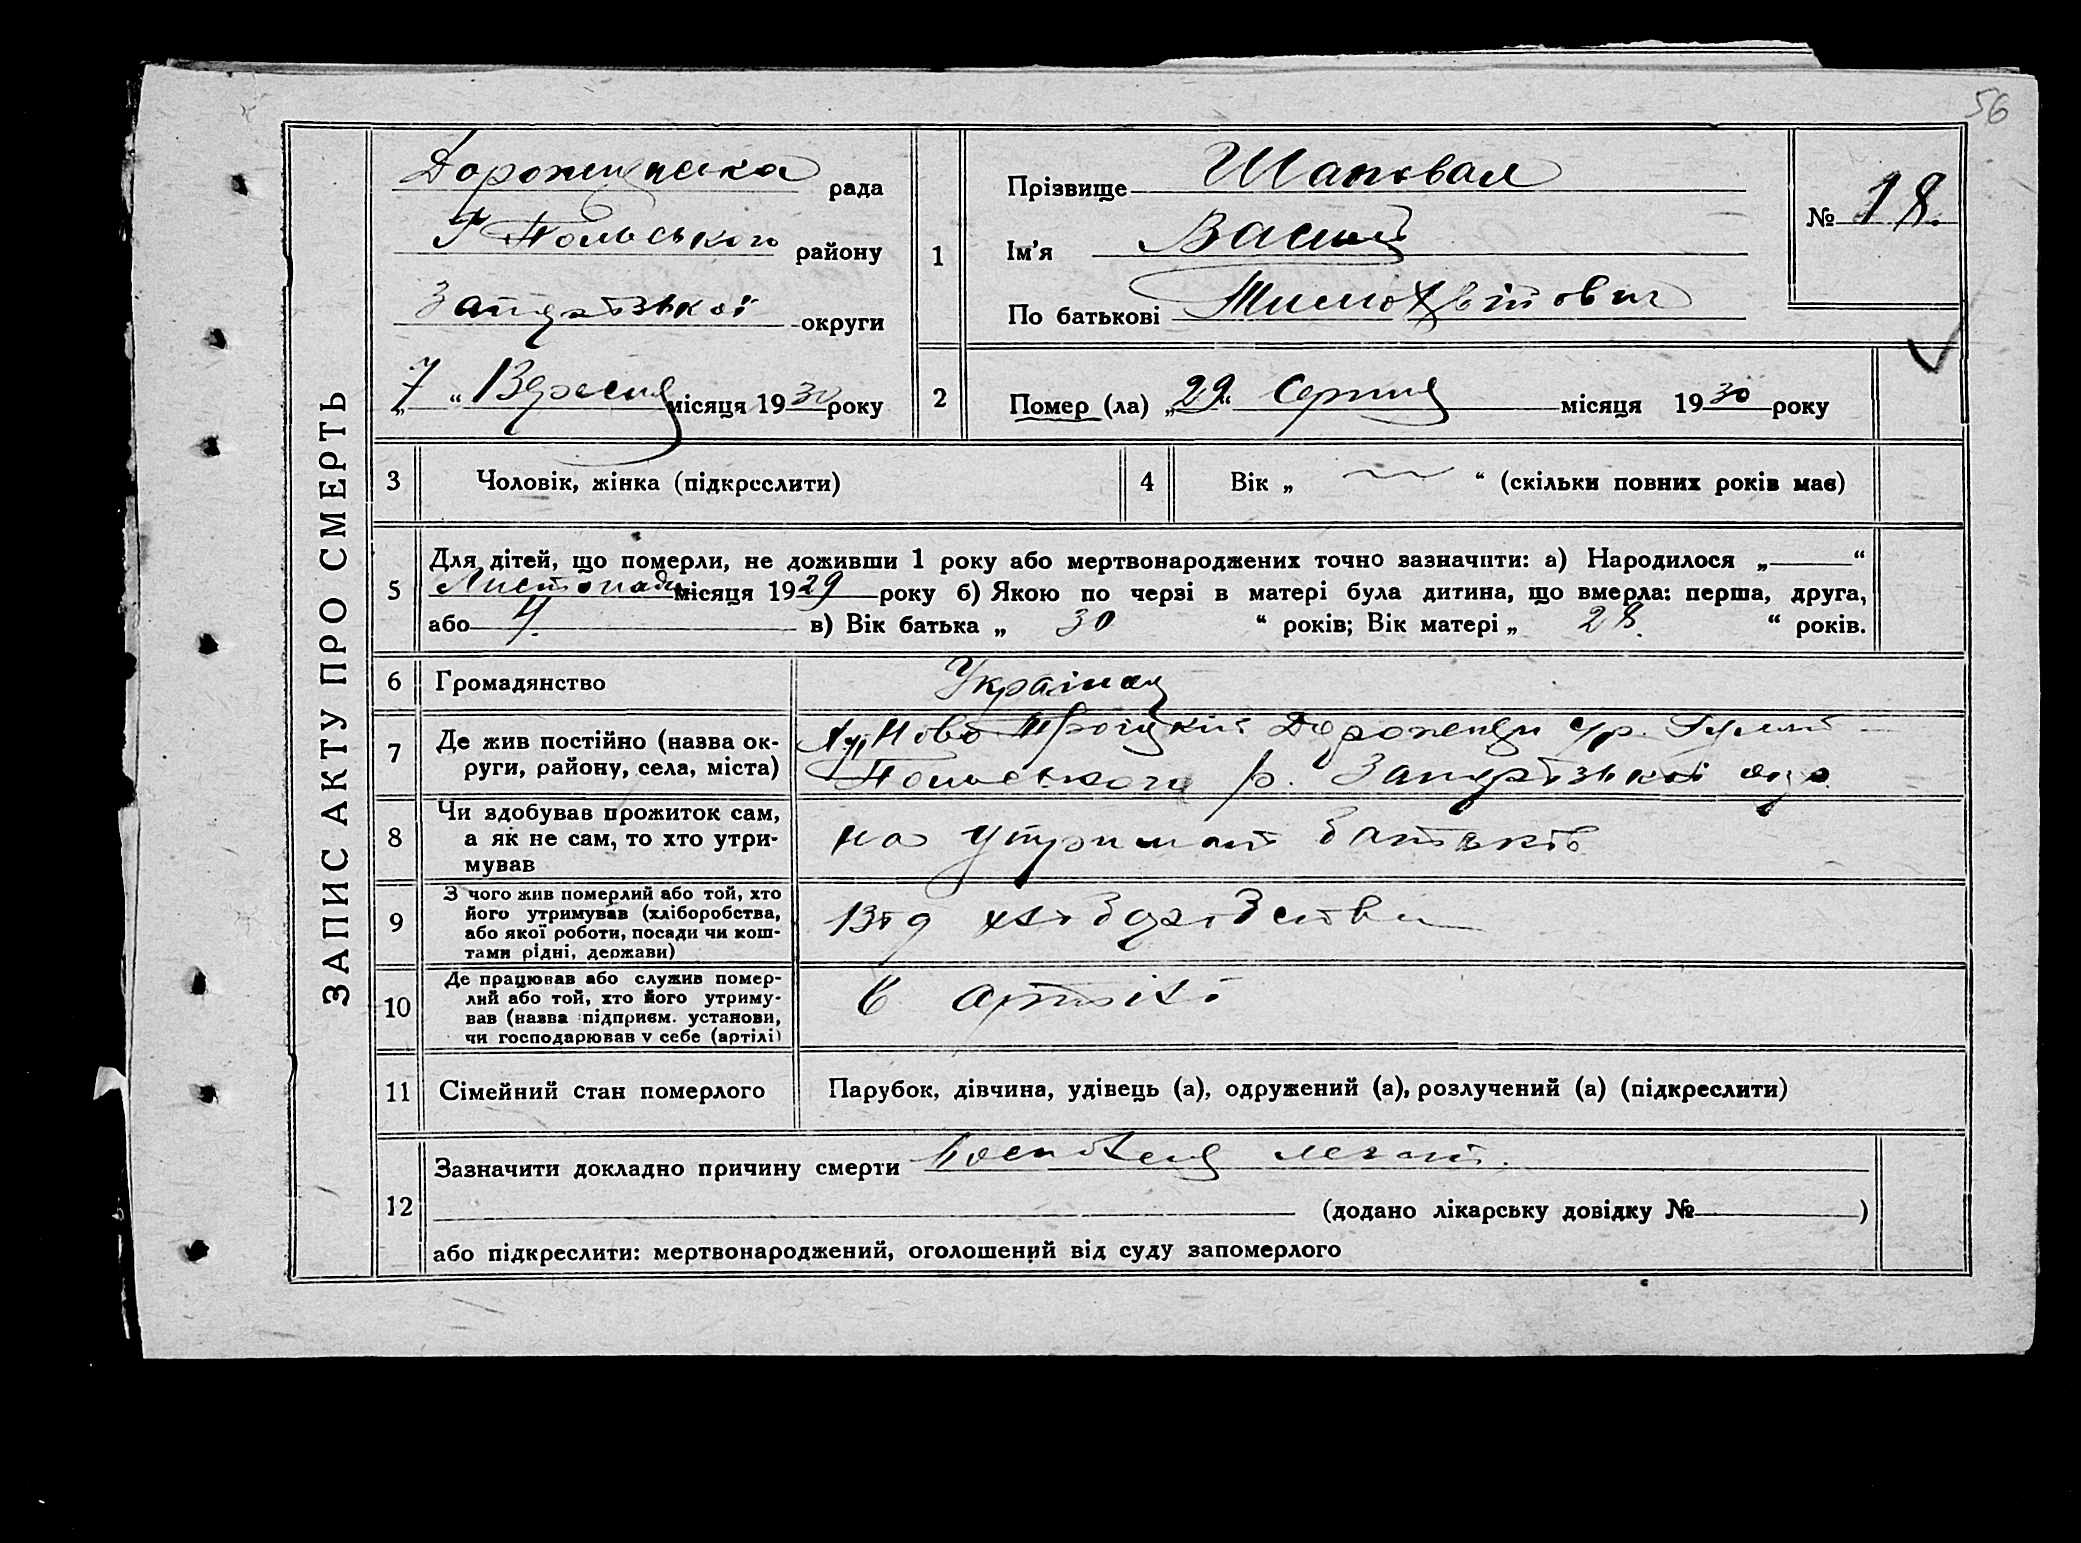 56
ЗАПИС АКТУ ПРО СМЕРТЬ
рада
Г Польського району
Запорізької округи
„7“ Вересня місяця 1930 року
1
Прізвище Шаповал
Ім'я Василь
По батькові
№ 18.
2
Помер (ла) „29“ Серпня місяця 1930 року
3
Чоловік, жінка (підкреслити)
4
Вік „ “ (скільки повних років має)
5
Для дітей, що померли, не доживши 1 року або мертвонароджених точно зазначити: а) Народилося „ “
Листопада місяця 1929 року б) Якою по черзі в матері була дитина, що вмерла: перша, друга,
або 4. в) Вік батька „ 30 “ років; Вік матері „ 28. “ років.
6
Громадянство
7
Де жив постійно (назва ок-
руги, району, села, міста)
Ново Троіцкий
Польського р. Запорізькоі окр.
8
Чи здобував прожиток сам,
а як не сам, то хто утри-
мував
на утримані батьків
9
З чого жив померлий або той, хто
його утримував (хліборобства,
або якої роботи, посади чи кош-
тами рідні, держави)
Від хліборобства
10
Де працював або служив помер-
лий або той, хто його утриму-
вав (назва підприєм. установи,
чи господарював у себе (артілі)
в артілі
11
Сімейний стан померлого
Парубок, дівчина, удівець (а), одружений (а), розлучений (а) (підкреслити)
12
Зазначити докладно причину смерти
(додано лікарську довідку № )
або підкреслити: мертвонароджений, оголошений від суду запомерлого